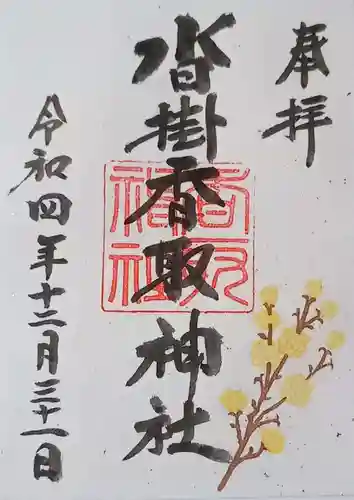 奉拝
沓掛香取神社
令和四年十二月三十一日